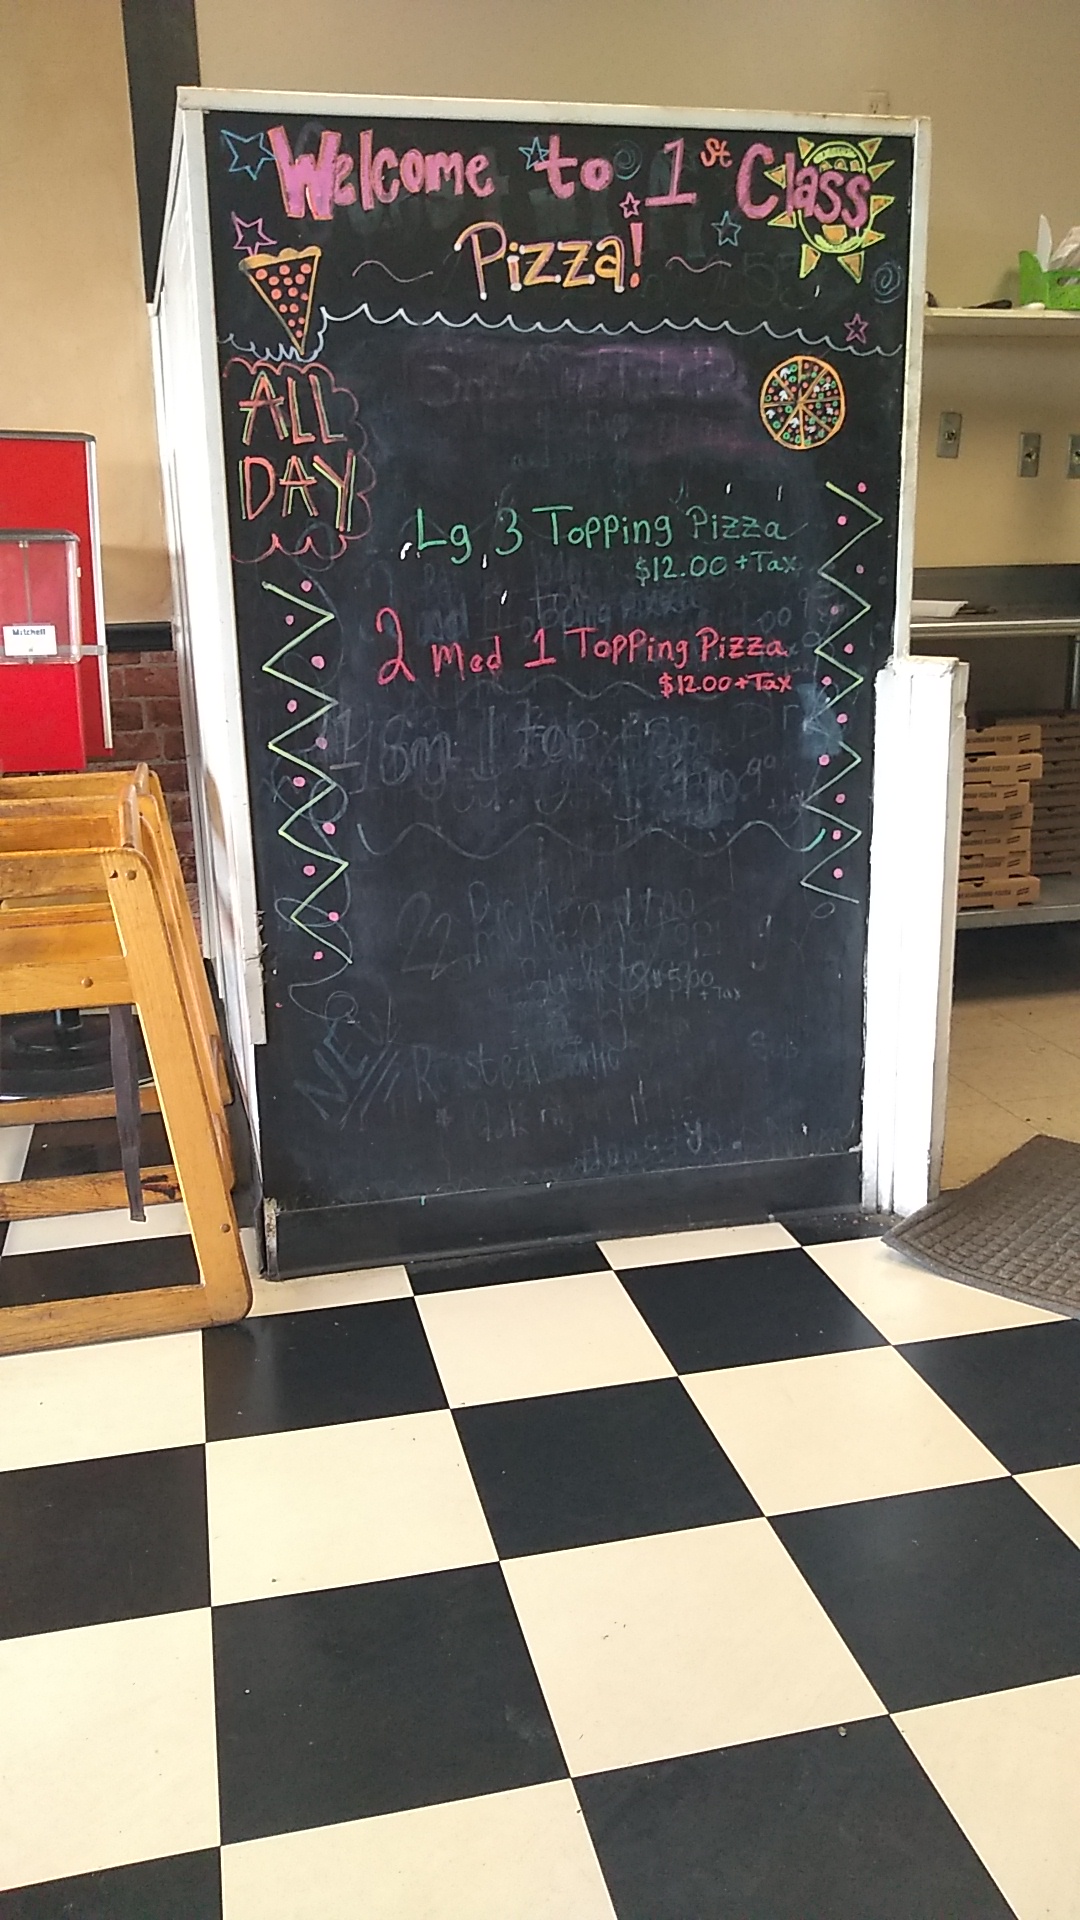 Welcome to 1st Class
Pizza!
ALL
DAY
Lg 3 Topping Pizza
$12.00 + Tax
2 med 1 Topping Pizza
$12.00 + Tax
NEW
Mitchell